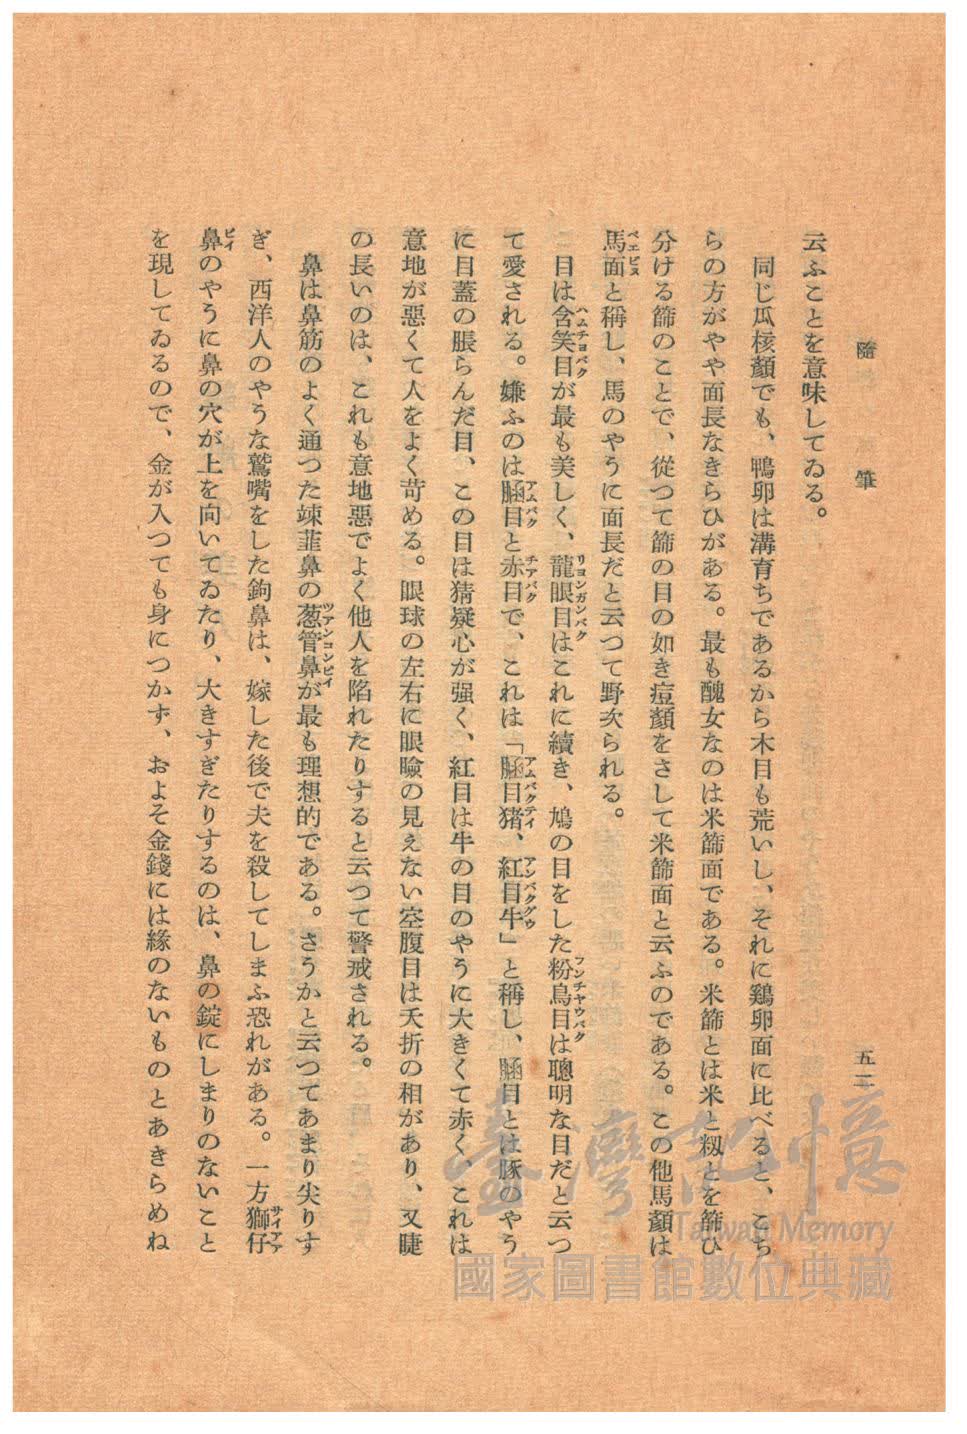 隨筆
五二
云ふことを意味してゐる。
同じ瓜核顏でも、鴨卵は溝育ちであるから木目も荒いし、それに鷄卵面に比べると、こち
らの方がやや面長なきらひがある。最も醜女なのは米篩面である。米篩とは米と籾とを篩ひ
分ける篩のことで、從つて篩の目の如き痘顏をさして米篩面と云ふのである。この他馬顏は
馬面と稱し、馬のやうに面長だと云つて野次られる。
目は含笑目が最も美しく、龍眼目はこれに續き、鳩の目をした粉鳥目は聰明な目だと云つ
て愛される。嫌ふのは䐶目と赤目で、これは「䐶目猪、紅目牛」と稱し、䐶目とは豚のやう
に目蓋の脹らんだ目、この目は猜疑心が强く、紅目は牛の目のやうに大きくて赤く、これは
意地が惡くて人をよく苛める。眼球の左右に眼瞼の見えない空腹目は夭折の相があり、又睫
の長いのは、これも意地惡でよく他人を陷れたりすると云つて警戒される。
鼻は鼻筋のよく通つた竦韮鼻の葱管鼻が最も理想的である。さうかと云つてあまり尖りす
ぎ、西洋人のやうな鷲嘴をした鉤鼻は、嫁した後で夫を殺してしまふ恐れがある。一方獅仔
鼻のやうに鼻の穴が上を向いてゐたり、大きすぎたりするのは、鼻の錠にしまりのないこと
を現してゐるので、金が入つても身につかず、およそ金錢には緣のないものとあきらめね
ベエビヌ
ハムチヨバク
リヨンガンバク
フンチヤウバク
アムバク
チアバク
アムバクテイ
アンバクグウ
ツアンコンビイ
サイアア
ビイ
臺灣記憶
Taiwan Memory
國家圖書館數位典藏